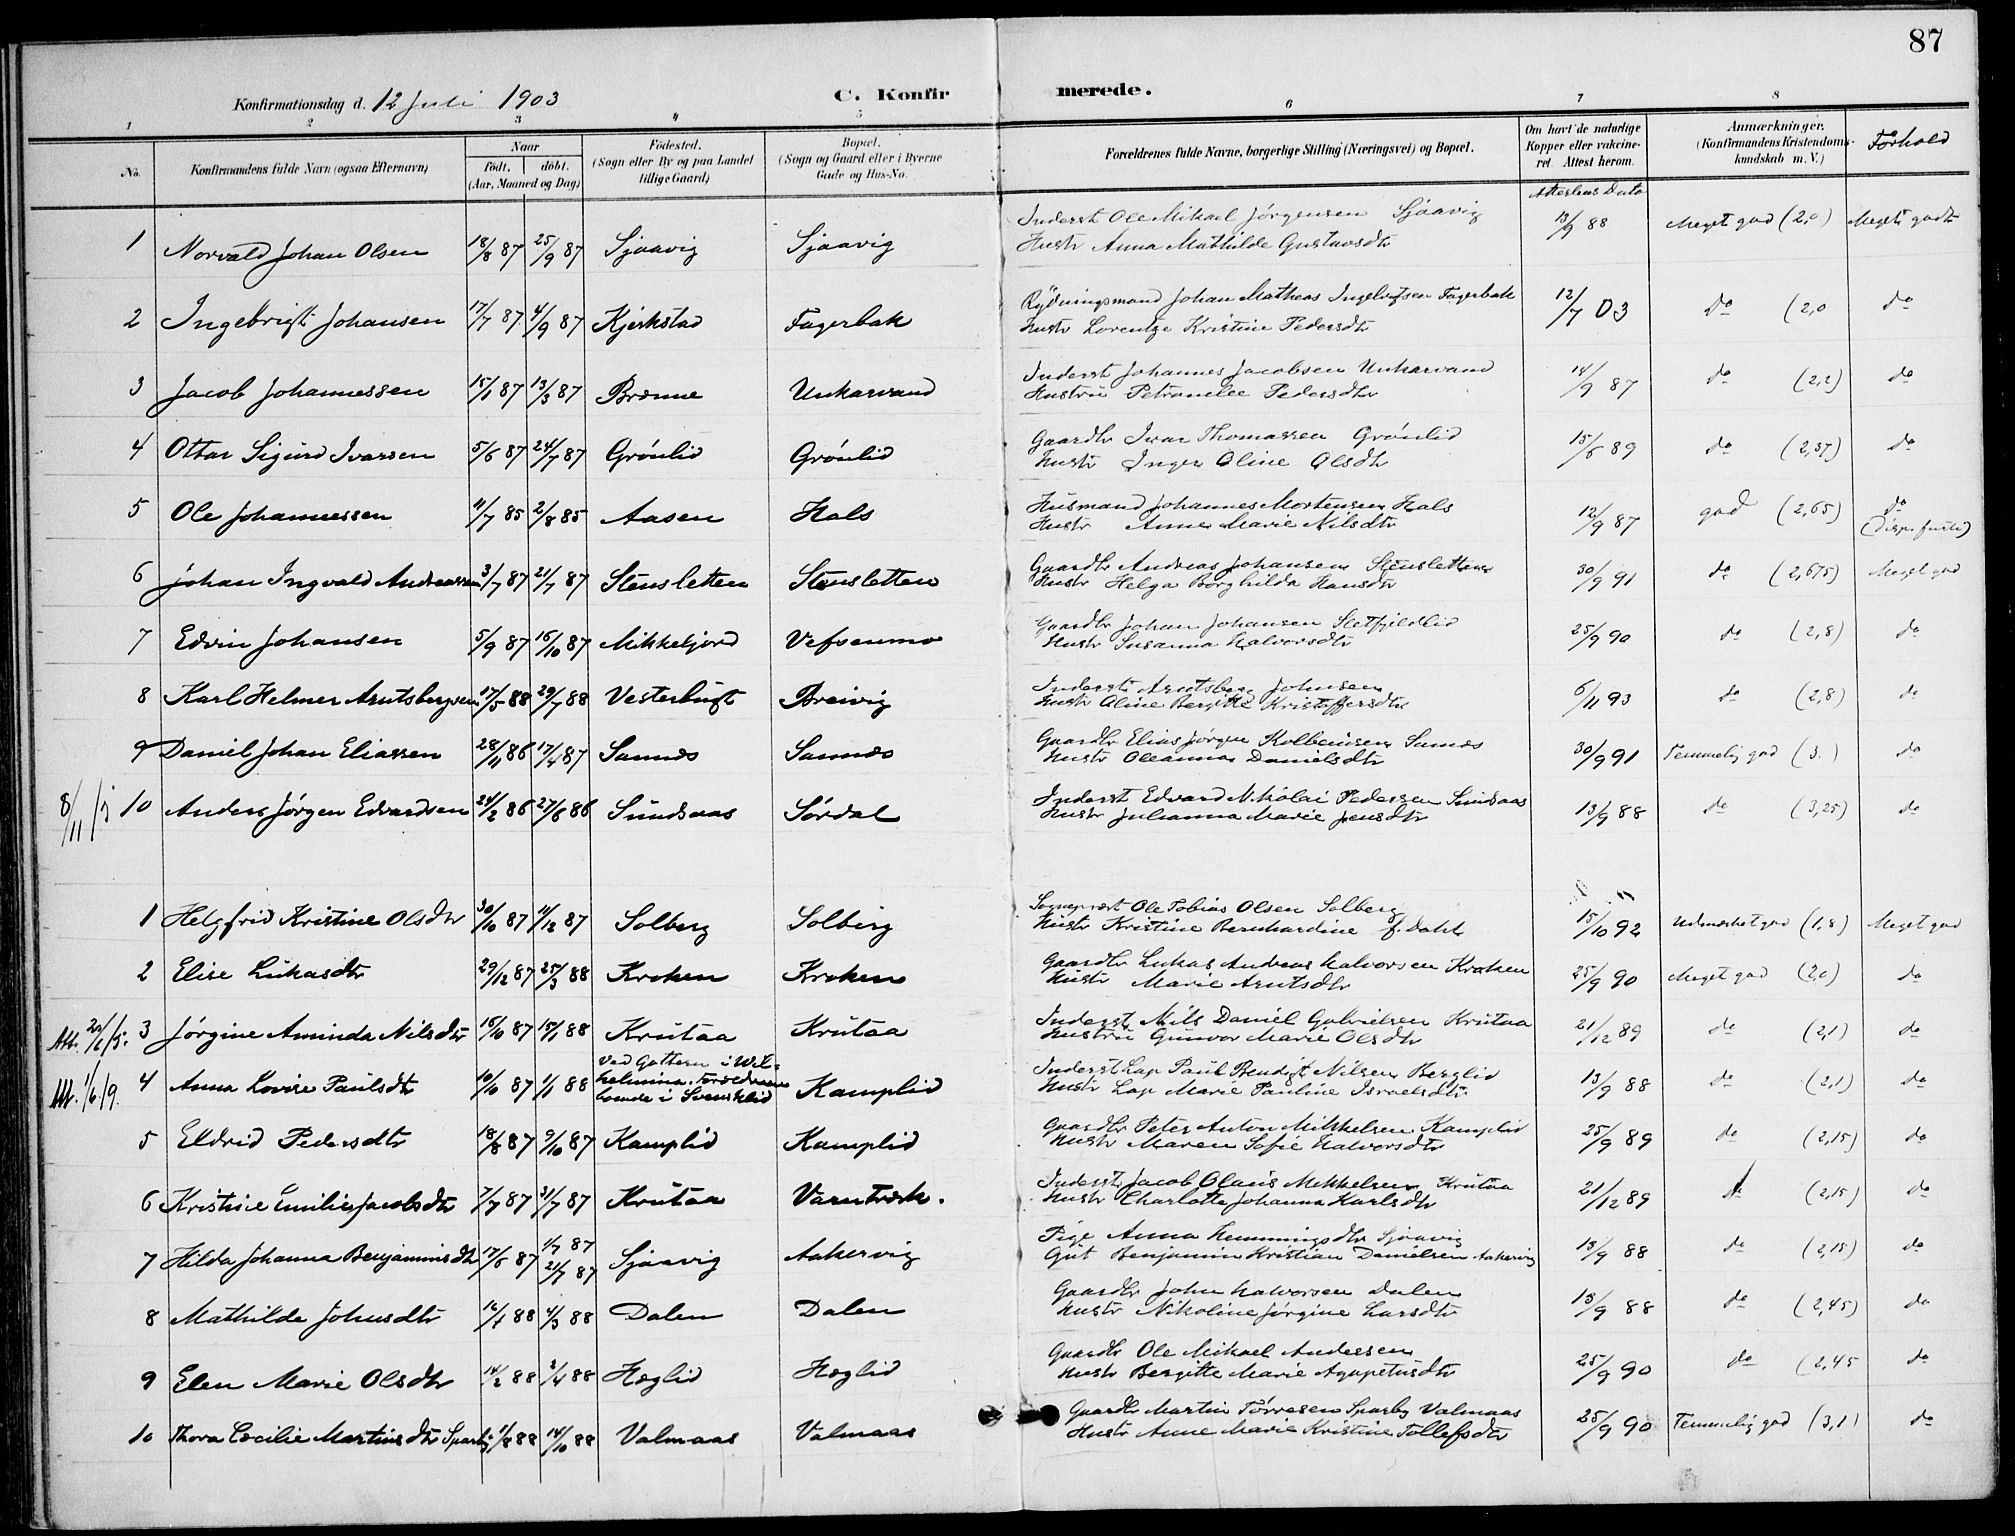 87
Konfirmationsdag d. 12 Juli 1903
C. Konfirmerede.
1 2 3 4 5 6 7 8
No. Konfirmandens fulde Navn (ogsaa Efternavn) Naar født. døbt. (Aar, Maaned og Dag) Fødested. (Sogn eller By og paa Landet tillige Gaard) Bopæl. (Sogn og Gaard eller i Byerne Gade og Hus-No. Forældrenes fulde Navne, borgerlige Stilling (Næringsvei) og Bopæl. Om havt de naturlige Kopper eller vaccineret. Attest herom. Anmærkninger, (Konfirmandens Kristendomskundskab m. V.) Forhold
Attestens Dato
1 Norvald Johan Olsen 18/8 87 25/9 87 Sjaavig Sjaavig Inderst Ole Mikael Jørgensen Sjaavig 13/9 88 Meget god (2,0) Meget godt
Hustr Anna Mathilde Gustavsdtr
2 Ingebrigt Johansen 17/7 87 4/9 87 Kjerkstad Fagerbak Rydningsmand Johan Matheas Ingebrigtsen Fagerbak 12/7 03 do (2,0 do
Hustr Lorentze Kristine Pedersdtr
3 Jacob Johannessen 15/1 87 13/3 87 Brenne Unkarvand Inderst Johannes Jacobsen Unkarvand 14/9 87 do (2,2) do
Hustru Petronelle Pedersdtr
4 Ottar Sigurd Ivarsen 5/6 87 24/7 87 Grønlid Grønlid Gaardbr Ivar Thomassen Grønlid 15/8 89 do (2,37) do
Hustr Inger Oline Olsdtr
5 Ole Johannessen 11/7 85 2/8 85 Aasen Hals Husmand Johannes Mortensen Hals 12/9 87 god (2,65) do
Hustr Anne Marie Nilsdtr
6 Johan Ingvald Andreassen 3/7 87 21/7 87 Stensletten Stensletten Gaardbr Andreas Johansen Stensletten 30/9 91 do (2,675) Meget god
Hustr Helga Borghilda Hansdtr
7 Edvin Johansen 5/9 87 16/10 87 Mikkeljord Vefsenmo Gaardbr Johan Johansen Sletfjeldlid 25/9 90 do (2,8) do
Hustr Susanna Halvorsdtr
8 Karl Helmer Arntsbergsen 17/5 88 29/7 88 Vesterbugt Breivig Inderst Arntsberg Johnsen 6/11 93 do (2,8) do
Hustr Oline Bergitte Kristoffersdtr
9 Daniel Johan Eliassen 28/11 86 17/4 87 Sannæs Sannæs Gaardbr Elias Jørgen Kolbeinsen Sannæs 30/9 91 Temmelig god (3.) do
Hustr Oleanna Danielsdtr
8/11 10 Anders Jørgen Edvardsen 24/2 86 27/6 86 Sundsaas Sørdal Inderst Edvard Nikolai Pedersen Sundsaas 13/9 88 do (3,25) do
Hustr Julianna Marie Jensdtr
1 Helgfrid Kristine Olsdtr 30/10 87 11/12 87 Solberg Solberg Sogneprest Ole Tobias Olsen Solberg 15/10 92 Udmærket god (1,8) Meget god
Hustr Kristine Bernhardine f. Dahl
2 Elise Lukasdtr 29/12 87 25/3 88 Kroken Kroken Gaardbr Lukas Andreas Halvorsen Kroken 25/9 90 Meget god (2,0) do
Hustr Marie Arntsdtr
3 Jørgine Aminda Nilsdtr 16/10 87 15/1 88 Krutaa Krutaa Inderst Nils Daniel Gabrielsen Krutaa 21/12 89 do (2,1) do
Hustru Gunvor Marie Olsdtr
Att. 1/6 19. 4 Anna Lovise Paulsdtr 10/10 87 1/1 88 Ved Gottern i Wilhelmina. Forældrene boende i Svensklid Kamplid Inderst Lap Paul Bendigt Nilsen Berglid 13/9 88 do (2,1) do
Hustr Lap Marie Pauline Israelsdtr
5 Eldrid Pedersdtr 18/8 87 9/10 87 Kamplid Kamplid Gaardbr Peter Anton Mikkelsen Kamplid 25/9 89 do (2,15) do
Hustr Maren Sofie Halvorsdtr
6 Kristine Emilie Jacobsdtr 7/7 87 31/7 87 Krutaa Varntræsk. Inderst Jacob Olaus Mikkelsen Krutaa 21/12 89 do (2,15) do
Hustr Charlotte Johanna Karlsdtr
7 Hilda Johanna Benjaminsdtr 17/6 87 1/7 87 21/7 87 Sjaavig Aakervig Pige Anna Hemmingsdtr Sjaavig 13/9 88 do (2,15) do
Gut Benjamin Kristian Danielsen Aakervig
8 Mathilde Johnsdtr 16/1 88 4/3 88 Dalen Dalen Gaardbr John Halvorsen Dalen 13/9 88 do (2,45) do
Hustr Nikoline Jørgine Larsdtr
9 Elen Marie Olsdtr 14/2 88 2/4 88 Hæglid Hæglid Gaardbr Ole Mikael Andersen 25/9 90 do (2,45 do
Hustr Bergitte Marie Agapetusdtr
10 Thora Cecilie Martinsdtr Sparby 1/8 88 14/10 88 Valmaas Valmaas Gaardbr Martin Tørresen Sparby Valmaas 25/9 90 Temmelig god (3,1) do
Hustr Anne Marie Kristine Tollefsdtr